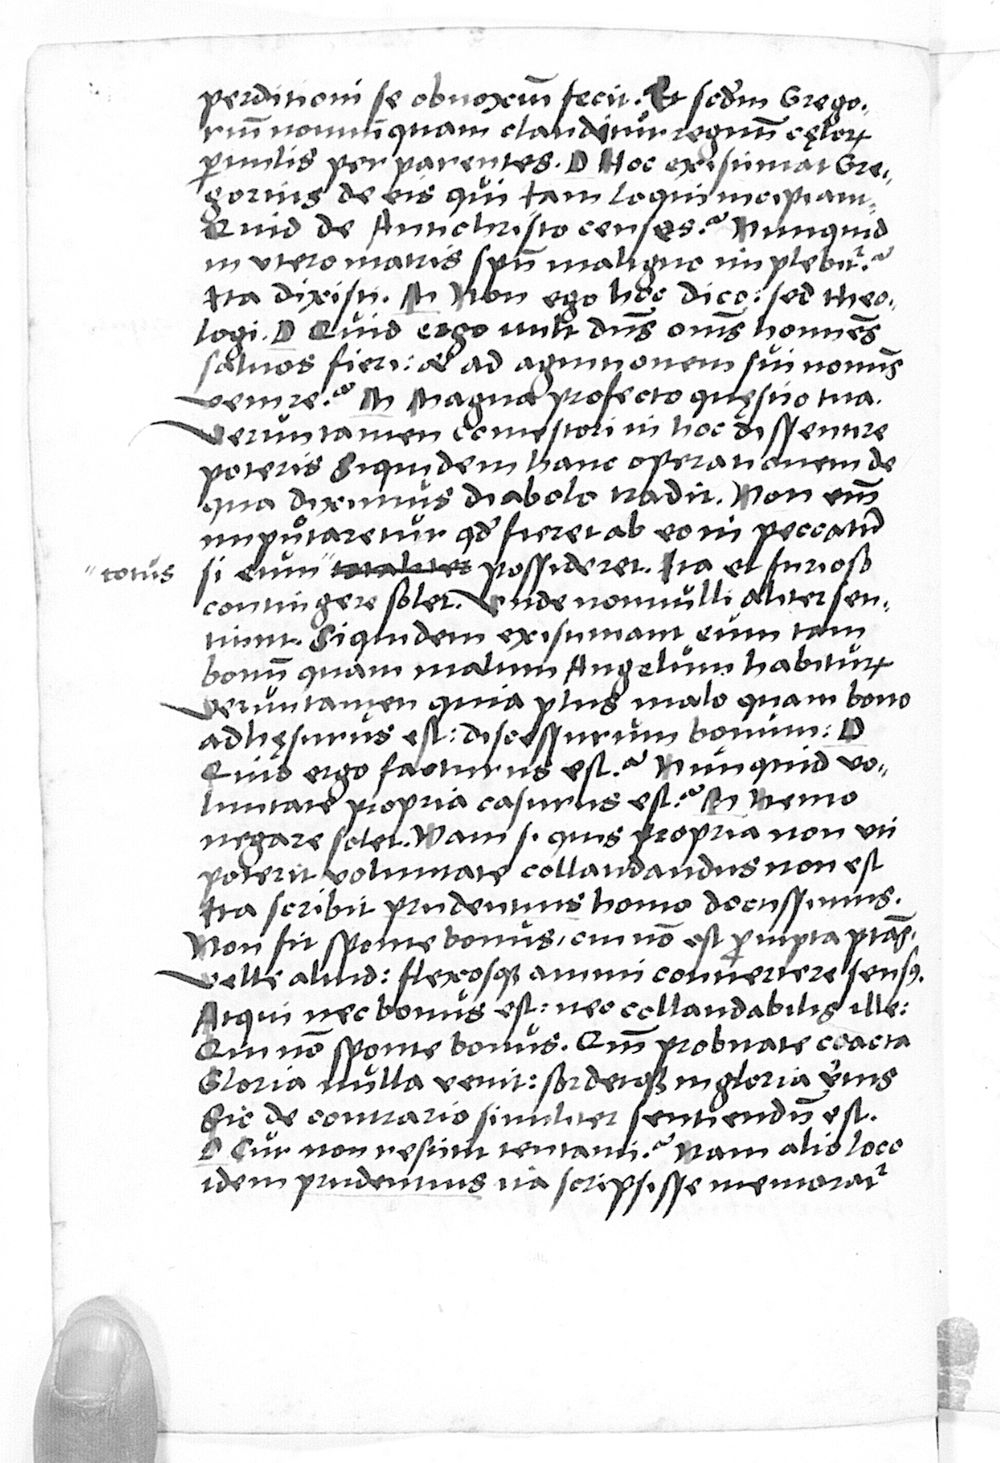 perditioni se obnoxiũ fecit. Et scd̃m Grego-
riũ nonnũquam clauditur regnũ cęlorꝝ
ꝑvulis per parentes. D Hoc existimat Gre-
gorius de eis qui iam loqui incipiant.
Quid de Antichristo censes? Nunquid
in vtero matris spũ maligno implebit᷑?
Ita dixisti. M Non ego hoc dico: sed theo-
logi. D Quid ergo uult dñs om̃s homines
saluos fieri: & ad agnitionem sui nomĩs
venire? M Magna profecto quęstio tua.
Veruntamen comestori in hoc dissentire
poteris Siquidem hanc operationem de
qua diximus diabolo tradit. Non em̃
imputaretur qd̃ fieret ab eo in peccatũ
si eum totaliter possideret. Ita et furiosis
"totus
contingere solet. Vnde nonnulli aliter sen-
tiunt. Siquidem existimant eum tam
bonũ quam malum Angelum habiturꝝ
Veruntamen quia plus malo quam bono
adhęsurus est: discessurum bonum: D
Quid ergo facturus est? Nunquid vo-
luntate propria casurus est? M Nemo
negare solet. Nam si quis propria non vti
poterit voluntate collaudandus non est
Ita scribit prudentius homo doctissimus.
Non fit sponte bonus, cui nõ est ꝓmpta ptãs.
Velle aliud: flexosqꝫ animi conuertere sensꝰ.
Atqui nec bonus est: nec collaudabilis ille:
Qui nõ sponte bonus. Qm̃ probitate coacta
Gloria nulla venit: sordetqꝫ ingloria v̾tus
Sic de contrario similiter sentiendũ est.
D Cur non restitit tentanti? Nam alio loco
idem prudentius ita scripsisse memorat᷑